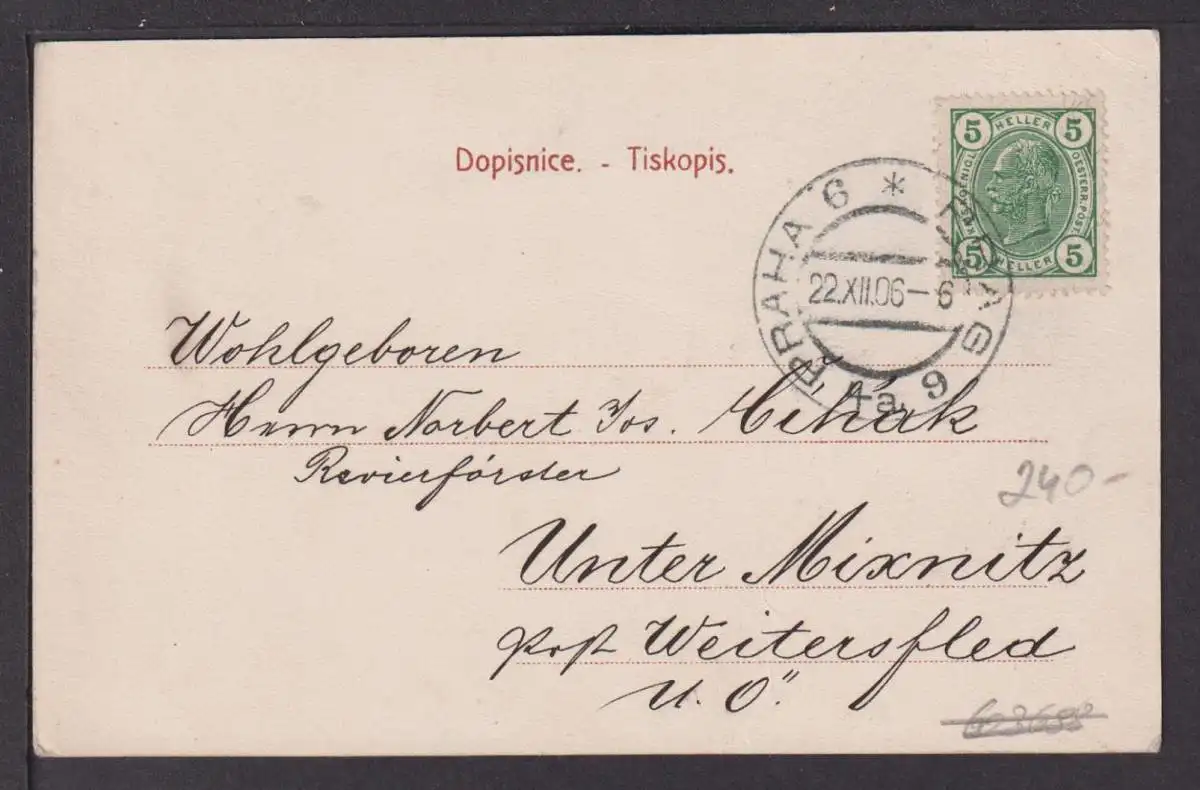 Dopisnice. - Tiskopis.
5 HELLER 5
OESTERR. POST.
5 HELLER 5
PRAHA 6 * PRAG 6
22.XII.06-6
4a
Wohlgeboren
Herrn Norbert Jos. Čihák
Revierförster
Unter Mixnitz
post Weitersfled
U. O."
240-